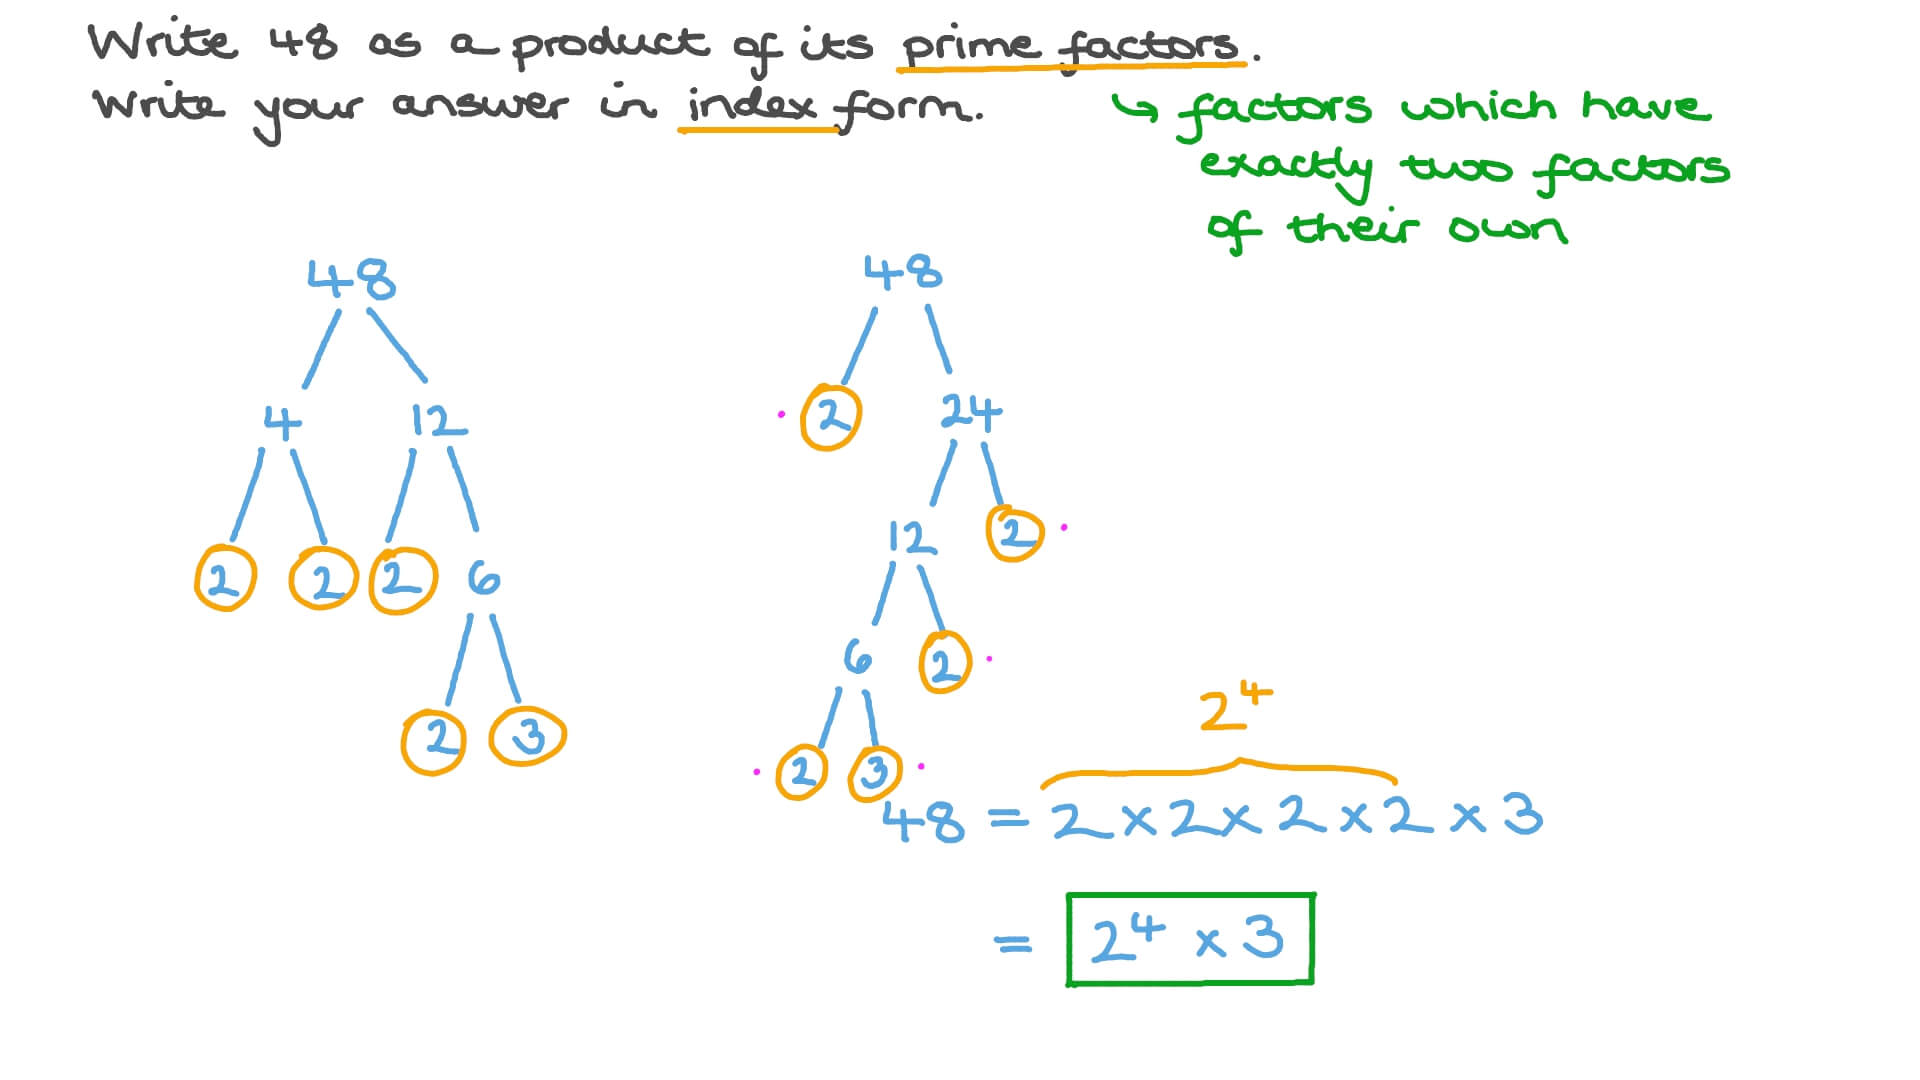 Write 48 as a product of its prime factors.
Write your answer in index form.
↳ factors which have
exactly two factors
of their own
48
4 12
2 2 2 6
2 3
48
2 24
12 2
6 2
2 3
2⁴
48 = 2 × 2 × 2 × 2 × 3
= 2⁴ × 3